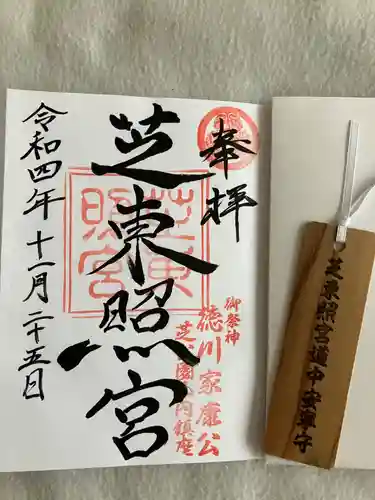 奉拝
御祭神
徳川家康公
芝公園内鎮座
芝東照宮
芝東照宮
令和四年十一月二十五日
芝東照宮道中安全守